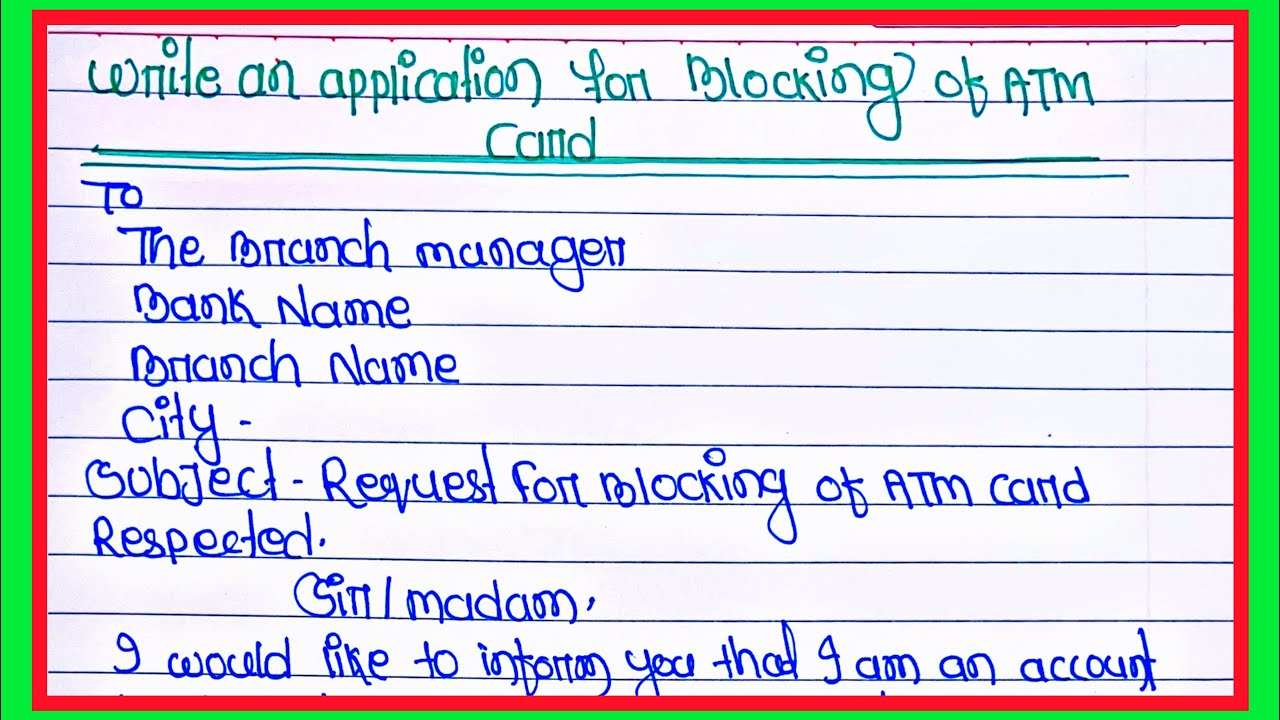 Write an application for Blocking of ATM
Card
To
The Branch manager
Bank Name
Branch Name
City -
Subject - Request for Blocking of ATM Card
Respected.
Sir/madam,
I would like to inform you that I am an account